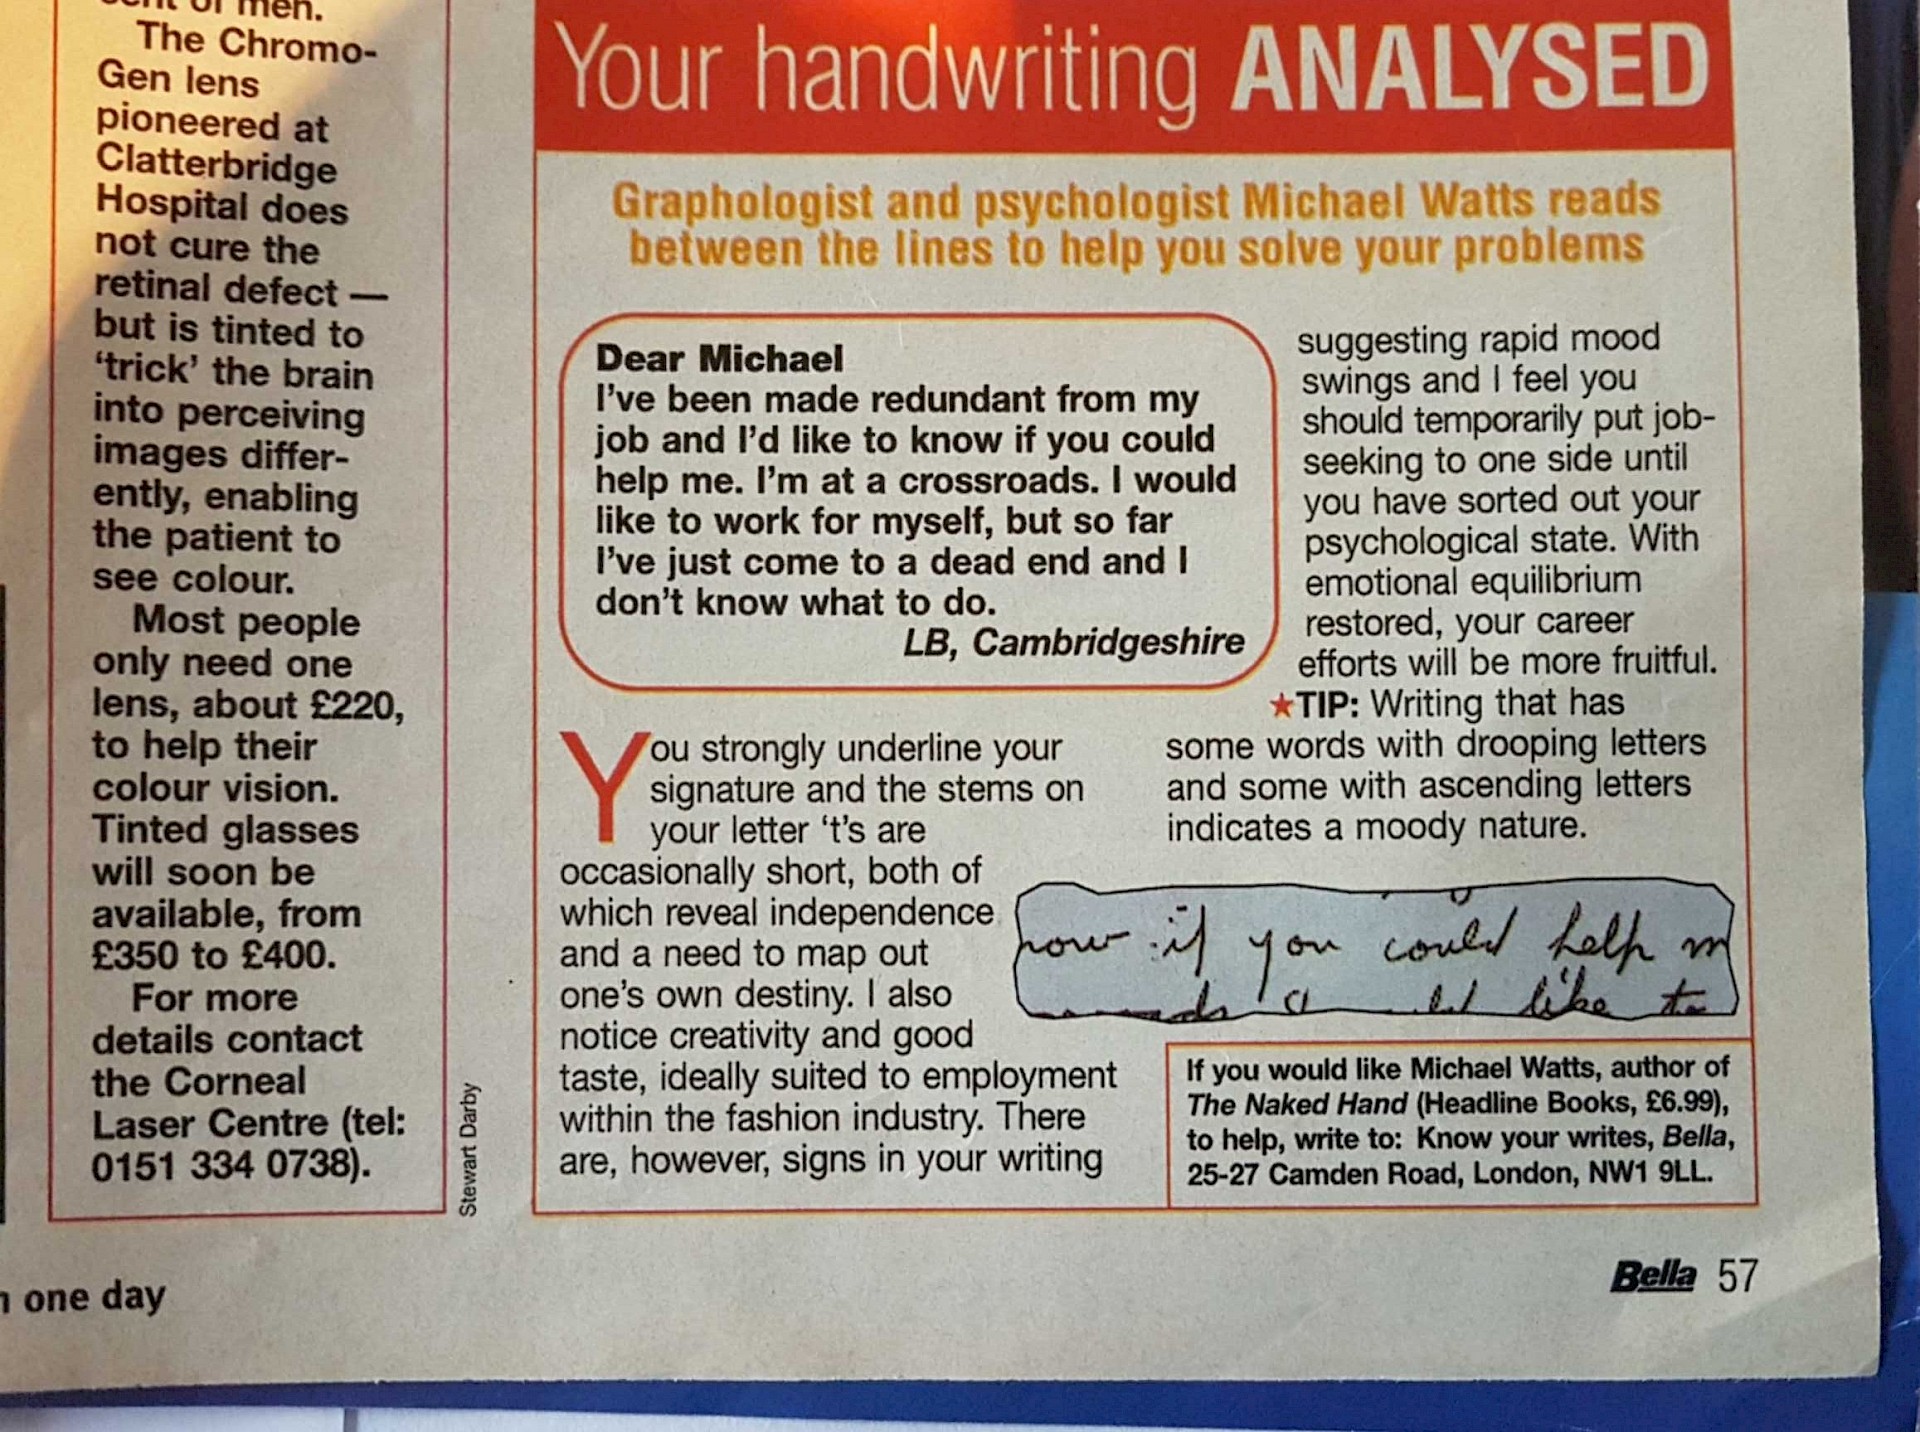 of men.
The Chromo-
Gen lens
pioneered at
Clatterbridge
Hospital does
not cure the
retinal defect —
but is tinted to
‘trick’ the brain
into perceiving
images differ-
ently, enabling
the patient to
see colour.
Most people
only need one
lens, about £220,
to help their
colour vision.
Tinted glasses
will soon be
available, from
£350 to £400.
For more
details contact
the Corneal
Laser Centre (tel:
0151 334 0738).
Stewart Darby
one day
Your handwriting ANALYSED
Graphologist and psychologist Michael Watts reads
between the lines to help you solve your problems
Dear Michael
I’ve been made redundant from my
job and I’d like to know if you could
help me. I’m at a crossroads. I would
like to work for myself, but so far
I’ve just come to a dead end and I
don’t know what to do.
LB, Cambridgeshire
You strongly underline your
signature and the stems on
your letter ‘t’s are
occasionally short, both of
which reveal independence
and a need to map out
one’s own destiny. I also
notice creativity and good
taste, ideally suited to employment
within the fashion industry. There
are, however, signs in your writing
suggesting rapid mood
swings and I feel you
should temporarily put job-
seeking to one side until
you have sorted out your
psychological state. With
emotional equilibrium
restored, your career
efforts will be more fruitful.
★TIP: Writing that has
some words with drooping letters
and some with ascending letters
indicates a moody nature.
now if you could help m
like to
If you would like Michael Watts, author of
The Naked Hand (Headline Books, £6.99),
to help, write to: Know your writes, Bella,
25-27 Camden Road, London, NW1 9LL.
Bella 57